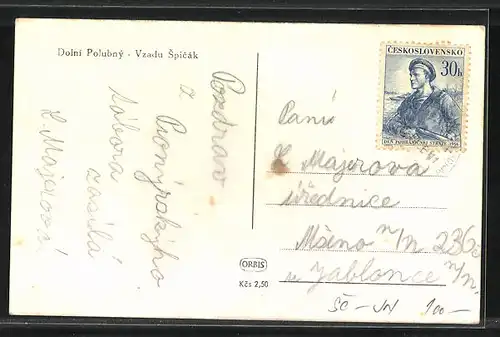 Dolní Polubný - Vzadu Špičák
Pozdrav
z
Pionýrského
tábora
zasílá
L. Majerová
ČESKOSLOVENSKO
30h
DEN POHRANIČNÍ STRÁŽE 1956
Paní
L Majerova
úřednice
n/N 236
u Jablonce n/N.
ORBIS
Kčs 2,50
SC-JN 100-